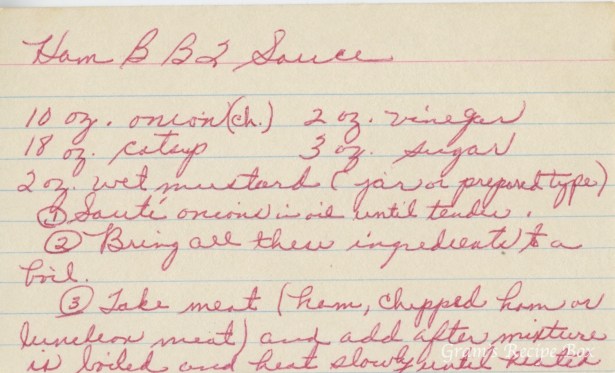 Ham B B Q Sauce
10 oz. onion (ch.) 2 oz. vinegar
18 oz. catsup 3 oz. sugar
2 oz. wet mustard (jar or prepared type)
① Sauté onions in oil until tender.
② Bring all these ingredients to a
boil.
③ Take meat (ham, chipped ham or
luncheon meat) and add after mixture
is boiled and heat slowly until heated
Gram's Recipe Box